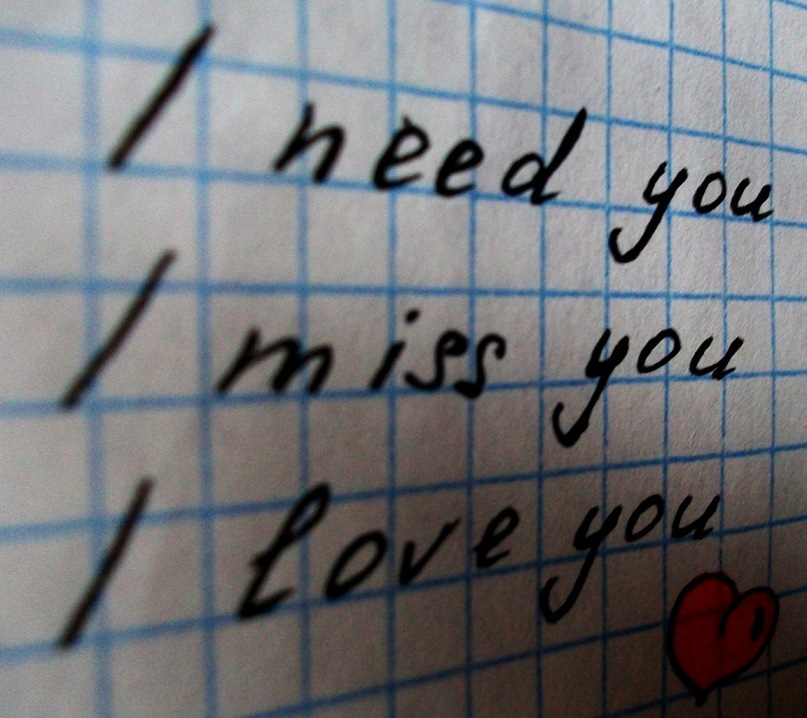 I need you
I miss you
I love you